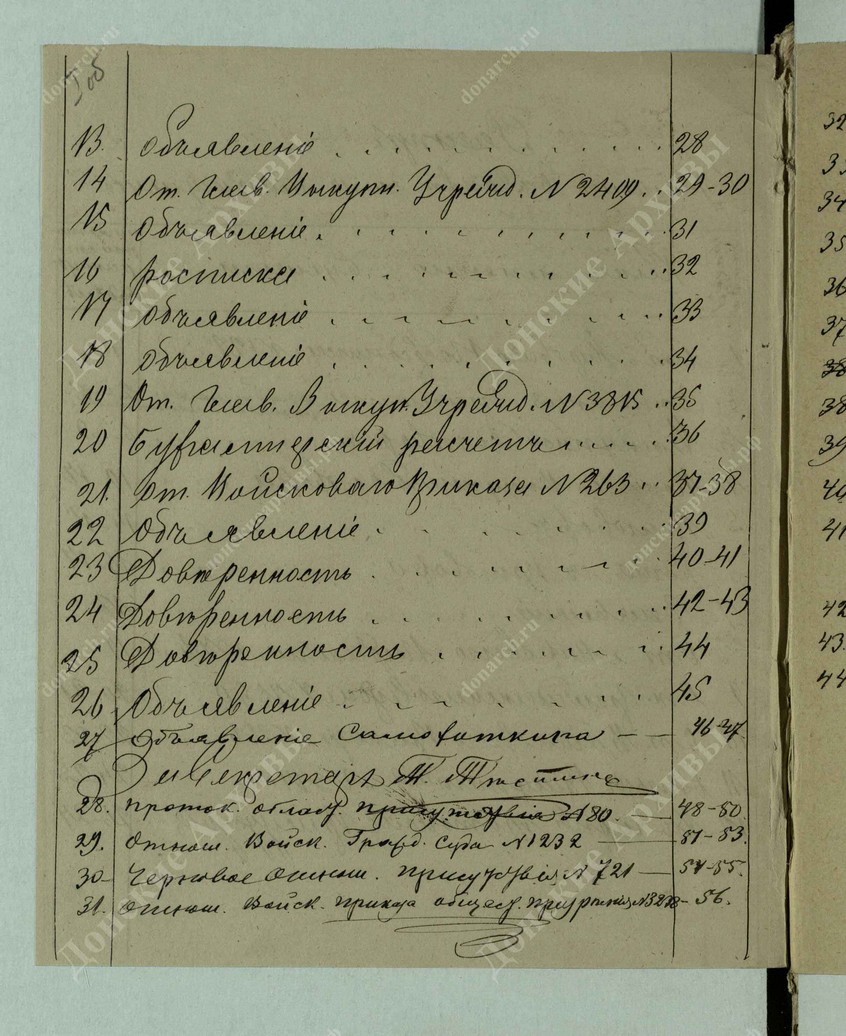 1об
13. Объявленіе 28
14 От. Глав. Выкупн. Учрежд. N 2409 29-30
15 Объявленіе 31
16 росписка 32
17 Объявленіе 33
18 Объявленіе 34
19 От. Глав. Выкуп. Учрежд. N 3815 35
20 Бухгалтерскій расчетъ 36
21. От. Войсковаго Приказа N 263 37-38
22 Объявленіе 39
23 Довѣренность 40-41
24 Довѣренность 42-43
25 Довѣренность 44
26 Объявленіе 45
27 Объявленіе Самохоткина 46-47
Секретарь
28. проток. област. присутствія N 80. 48-50
29. Отнош. Войск. Гражд. Суда N 1232 51-53.
30 Черновое отнош. присутствія N 721 54-55.
31. отнош. Войск. приказа общест. призрѣнія 56.
32
33
34
35
36
37
38
38
39
40
41
42
43.
44
Донские Архивы
donarch.ru